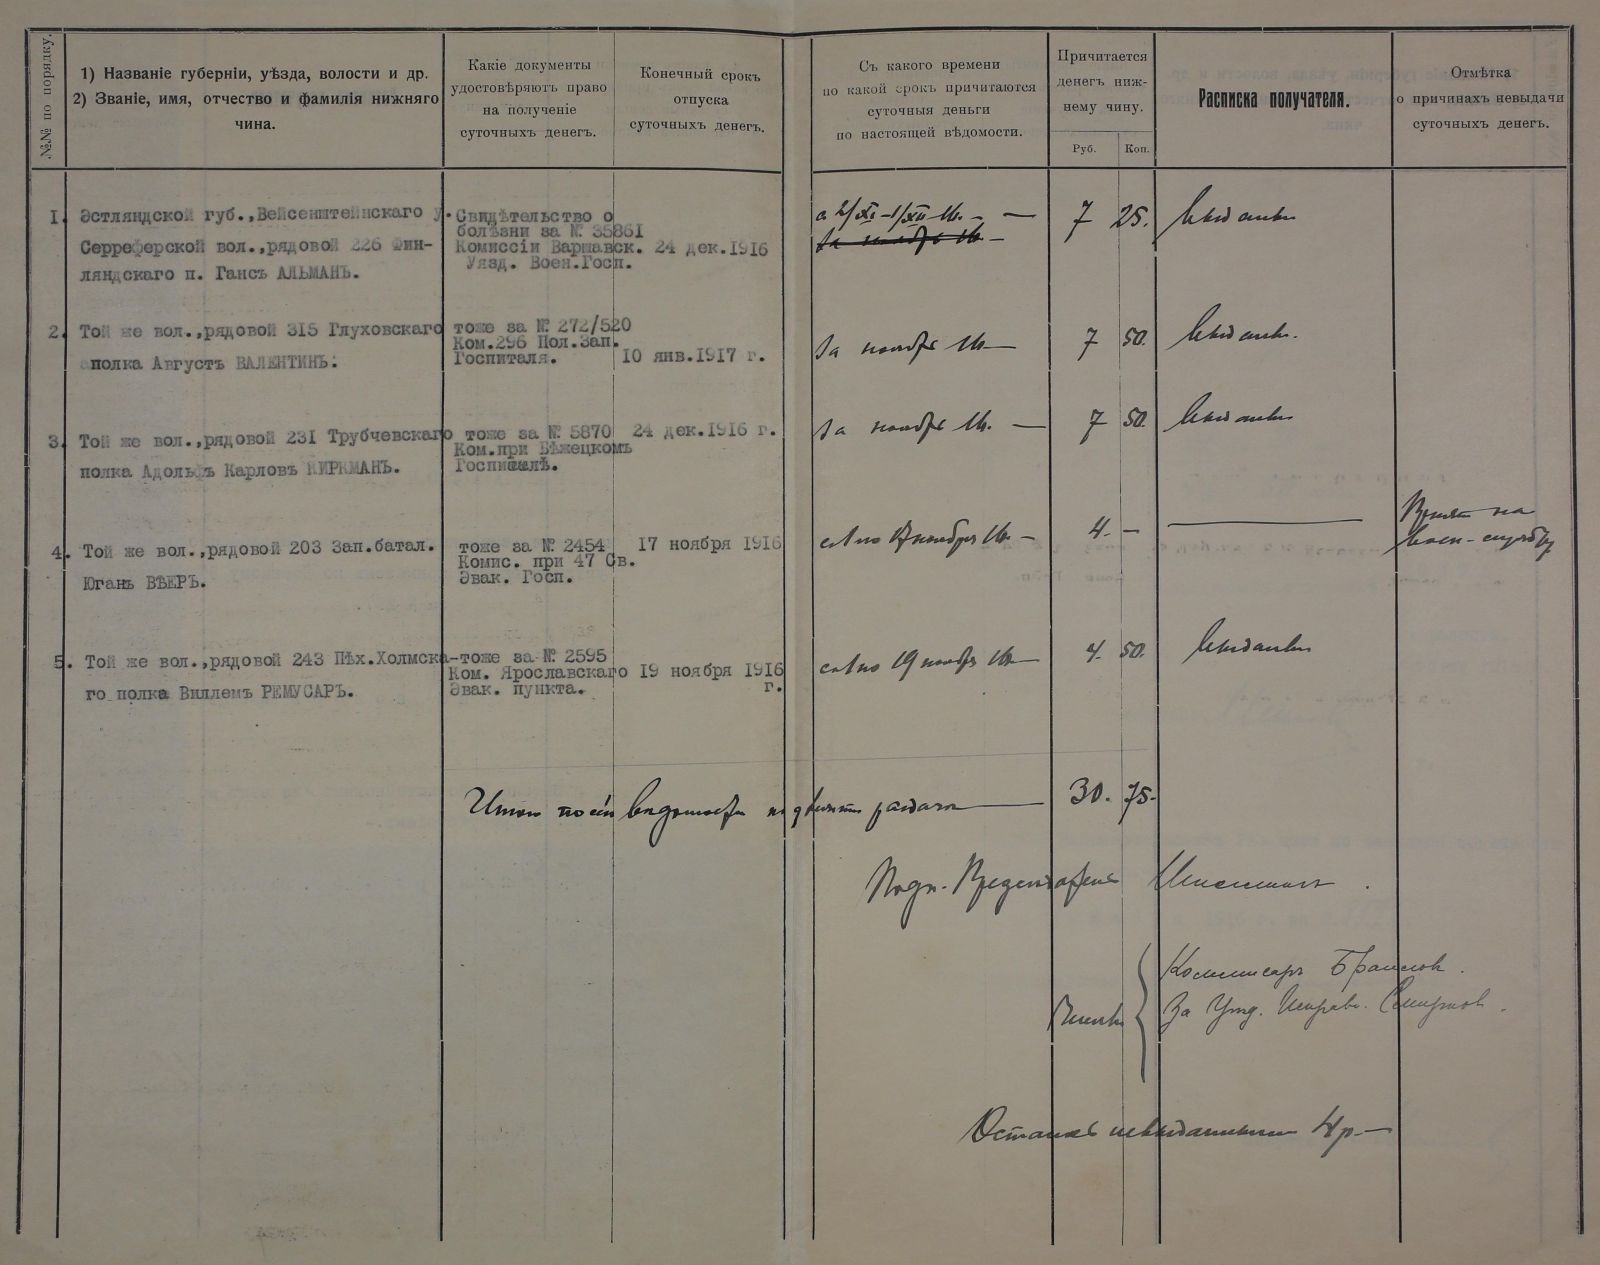 №№ по порядку.
1) Названіе губерніи, уѣзда, волости и др.
2) Званіе, имя, отчество и фамилія нижняго
чина.
Какіе документы
удостовѣряютъ право
на полученіе
суточныхъ денегъ.
Конечный срокъ
отпуска
суточныхъ денегъ.
Съ какого времени
по какой срокъ причитаются
суточныя деньги
по настоящей вѣдомости.
Причитается
денегъ ниж-
нему чину.
Руб.
Коп.
Расписка получателя.
Отмѣтка
о причинахъ невыдачи
суточныхъ денегъ.
1. Эстляндской губ.,Вейсенштейнскаго у.
Серреферской вол.,рядовой 226 Фин-
ляндскаго п. Гансъ АЛЬМАНЪ.
Свидѣтельство о
болѣзни за № 35861
Комиссіи Варшавск.
Уязд. Воен.Госп.
24 дек.1916
с 2/XI-1/XII-16. -
За ноябрь 16 -
7 25.
выданы
2. Той же вол.,рядовой 315 Глуховскаго
полка Августъ ВАЛЕНТИНЪ.
тоже за № 272/520
Ком.296 Пол.Зап.
Госпиталя.
10 янв.1917 г.
За ноябрь 16 -
7 50.
выданы.
3. Той же вол.,рядовой 231 Трубчевскаго
полка Адольфъ Карловъ КИРКМАНЪ.
тоже за № 5870
Ком.при Бѣжецкомъ
Госпиталѣ.
24 дек.1916 г.
За ноябрь 16. -
7 50.
выданы
4. Той же вол.,рядовой 203 Зап.батал.
Юганъ ВѢЕРЪ.
тоже за № 2454
Комис. при 47 Св.
Эвак. Госп.
17 ноября 1916
с 1 по 17 ноября 16 -
4. -
Взятъ на
воен. службу
5. Той же вол.,рядовой 243 Пѣх.Холмска-
го полка Виллемъ РЕМУСАРЪ.
тоже за № 2595
Ком. Ярославскаго
Эвак. пункта.
19 ноября 1916
г.
с 1 по 19 ноябр 16 -
4. 50.
выданы
Итого по сей вѣдомости подлежитъ раздачѣ
30. 75.
Подп. Предсѣдатель
Члены
Комиссаръ
За Уѣзд. Исправн. Смирновъ.
Осталось невыданными 4 р. -